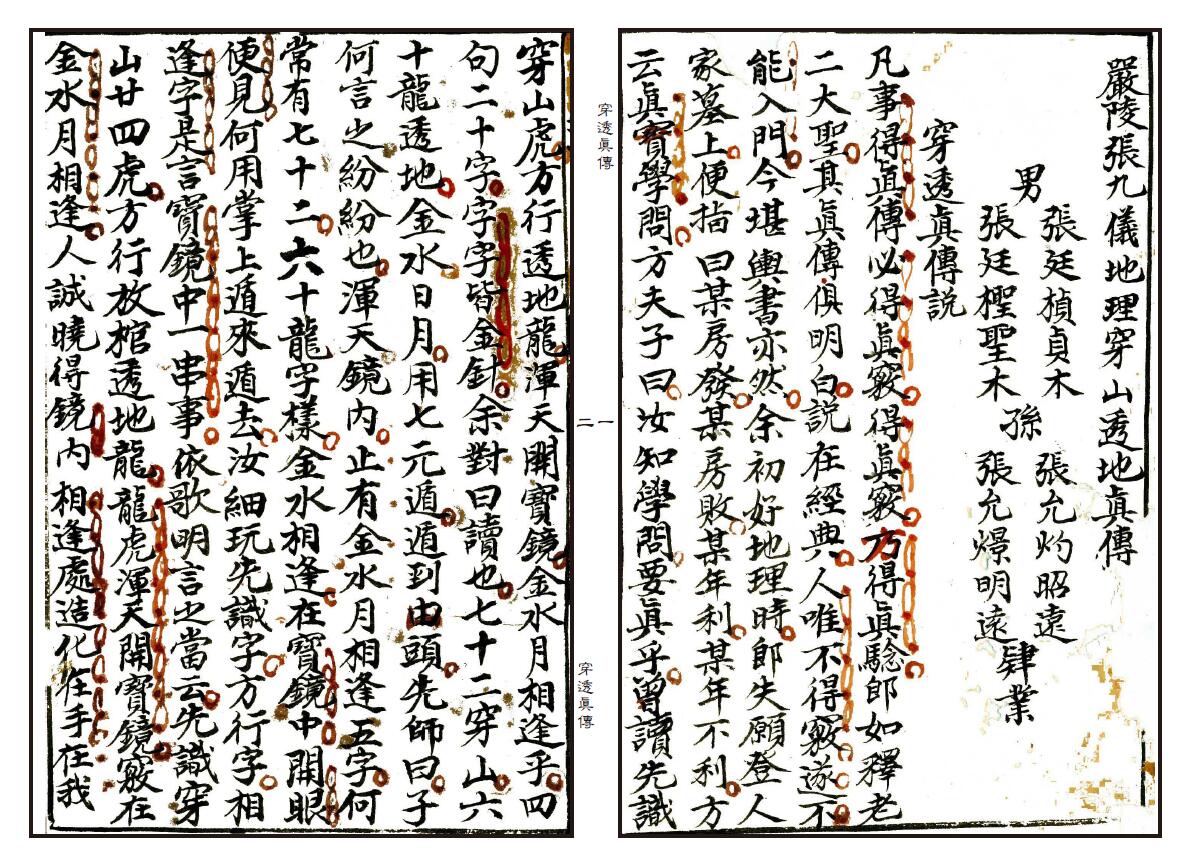 嚴陵張九儀地理穿山透地眞傳
男
張廷楨貞木
張廷檉聖木
孫
張允灼昭遠
張允燝明遠
肄業
穿透眞傳説
凡事得眞傳必得眞竅得眞竅乃得眞驗卽如釋老
二大聖其眞傳俱明白説在經典人唯不得竅遂不
能入門今堪輿書亦然余初好地理時卽失願登人
家墓上便指曰某房發某房敗某年利某年不利方
云眞寳學問方夫子曰汝知學問要眞乎曽讀先識
穿透眞傳
一
二
穿透眞傳
穿山虎方行透地龍渾天開寳鏡金水月相逢乎四
句二十字字字皆金針余對曰讀也七十二穿山六
十龍透地金水日月用七元遁遁到由頭先師曰子
何言之紛紛也渾天鏡内止有金水月相逢五字何
常有七十二六十龍字樣金水相逢在寳鏡中開眼
便見何用掌上遁來遁去汝細玩先識字方行字相
逢字是言寳鏡中一串事依歌明言之當云先識穿
山廿四虎方行放棺透地龍龍虎渾天開寳鏡竅在
金水月相逢人誠曉得鏡内相逢處造化在手在我